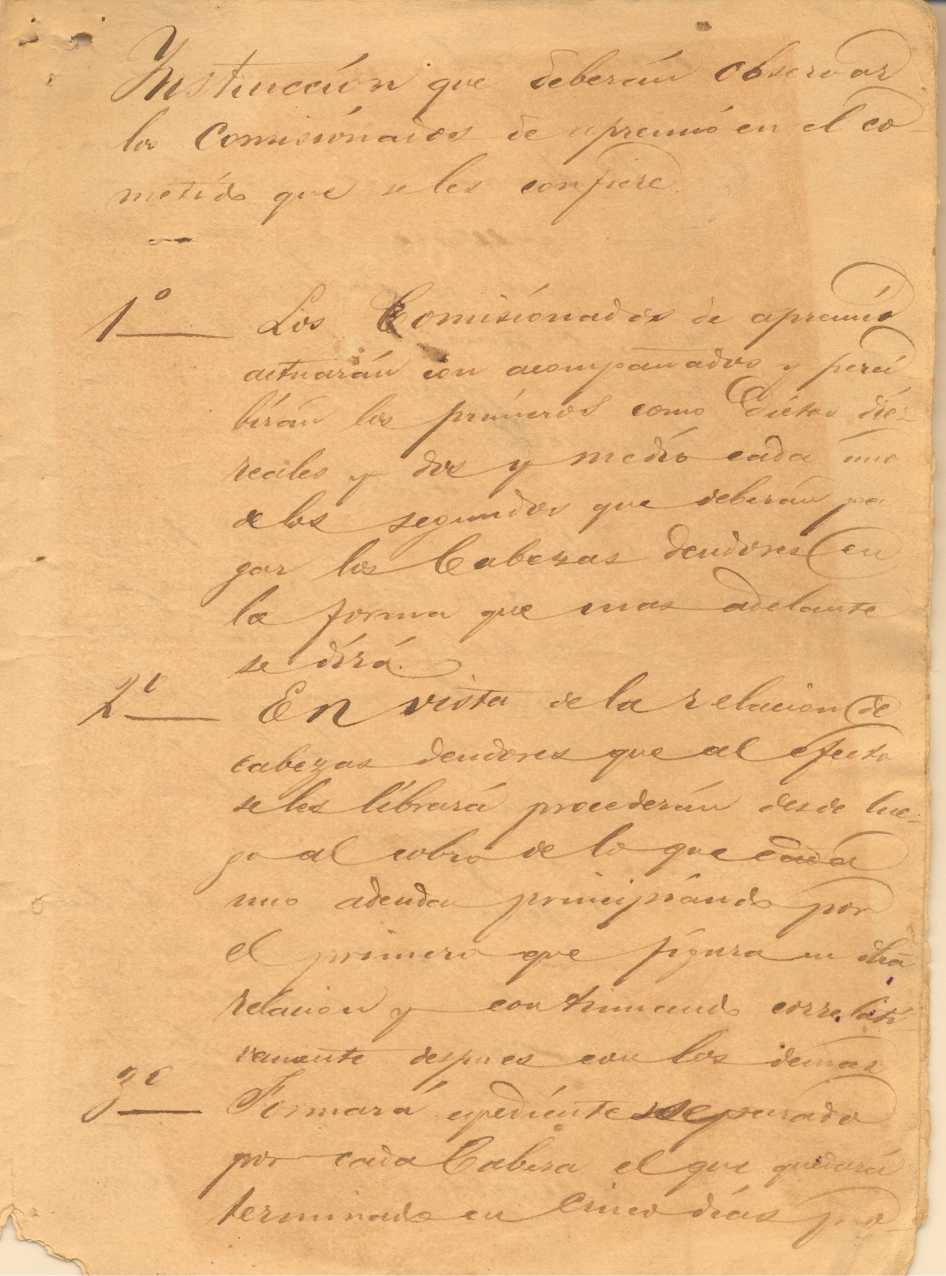 Instrucción que deberán observar
los Comisionados de apremio en el co-
metido que se les confiere.
1º Los Comisionados de apremio
actuarán con acompañados y perci
birán los primeros como Dietas diez
reales y dos y medio cada uno
de los segundos que deberán pa
gar los Cabezas deudores en
la forma que mas adelante
se dirá.
2º En vista de la relacion de
cabezas deudores que al efecto
se les librará procederán desde lue-
go al cobro de lo que cada
uno adeuda principiando por
el primero que figura en dha
relacion y continuando correlati-
vamente despues con los demas
3º Formará espediente separado
por cada Cabeza el que quedará
terminado en cinco dias pro